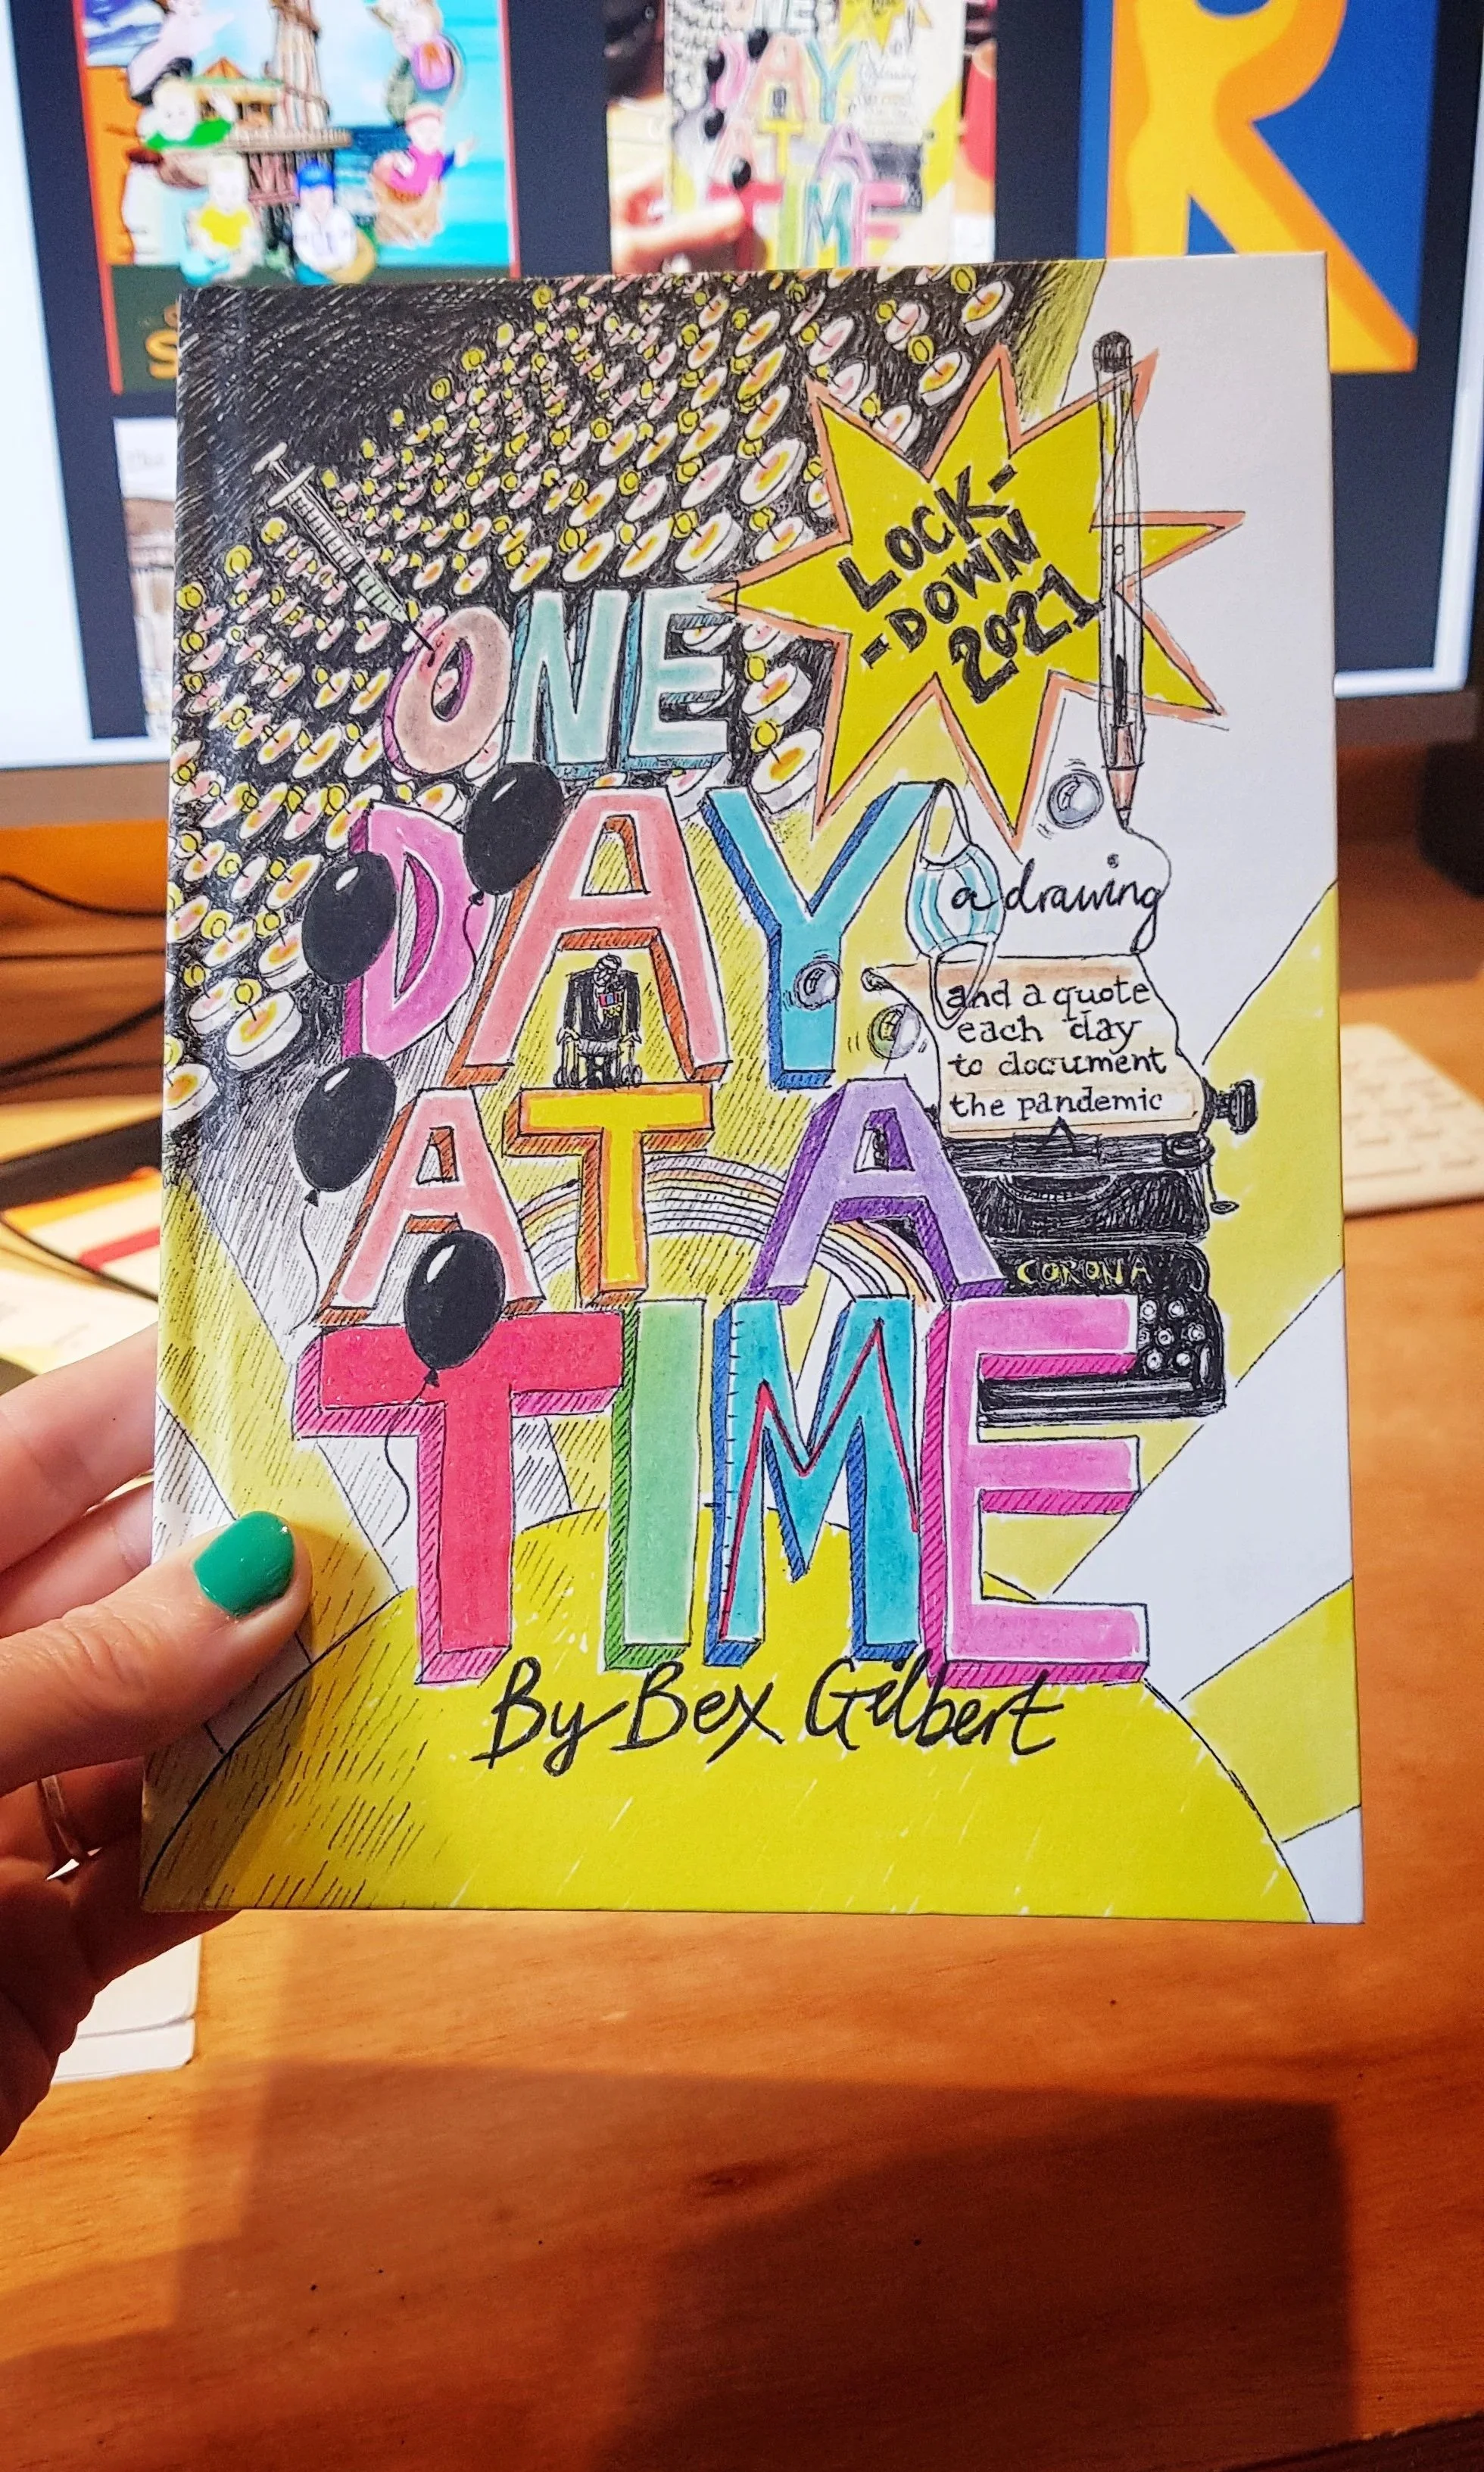 LOCK-
-DOWN
2021
ONE
DAY
a drawing
and a quote
each day
to document
the pandemic
AT A
CORONA
TIME
By Bex Gilbert